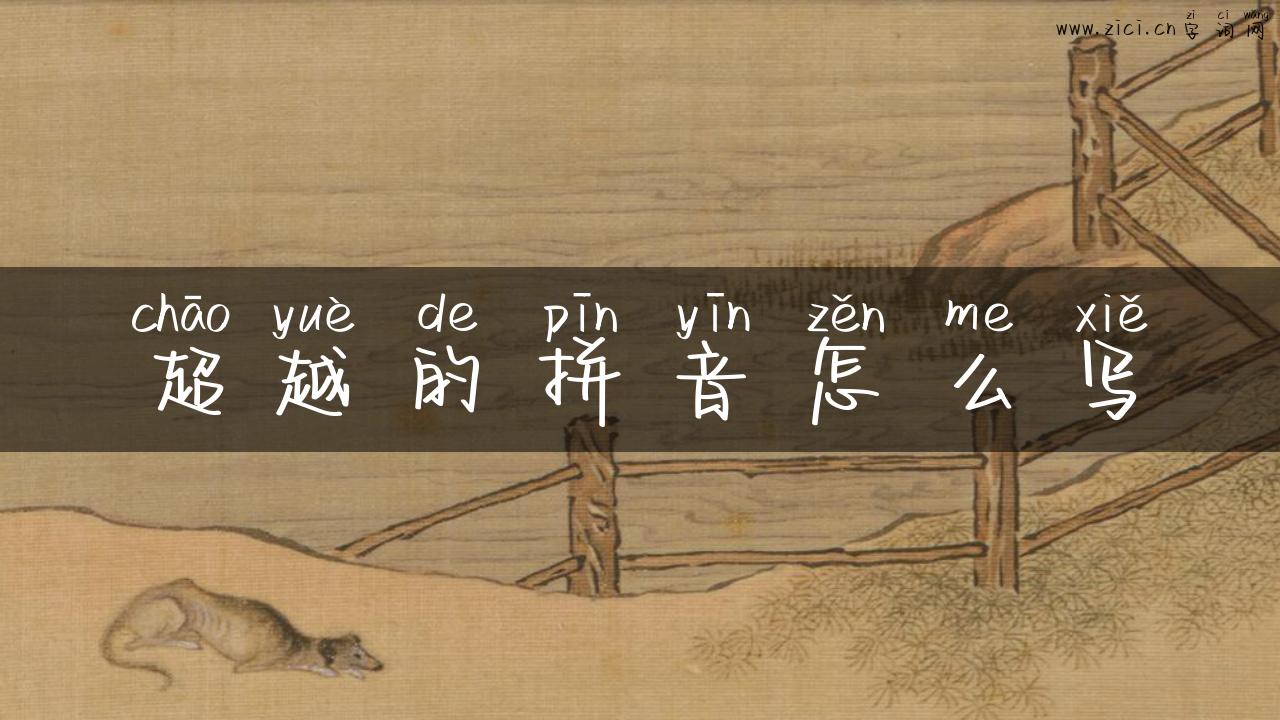 zì cí wǎng
www.zici.cn字词网
chāo yuè de pīn yīn zěn me xiě
超越的拼音怎么写